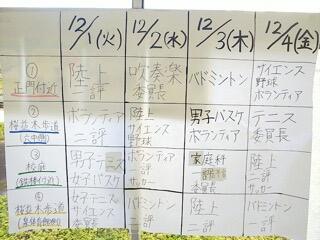 12/1(火)
12/2(水)
12/3(木)
12/4(金)
①
正門付近
陸上
二評
吹奏楽
委員長
バドミントン
サイエンス
野球
ボランティア
②
桜並木歩道
(六中側)
ボランティア
二評
陸上
サイエンス
野球
男子バスケ
ボランティア
テニス
委員長
③
校庭
男子テニス
女子バスケ
ボランティア
二評
サッカー
家庭科
委員長
陸上
二評
サッカー
④
桜並木歩道
女子テニス
サイエンス
委員長
バドミントン
二評
陸上
二評
バドミントン
二評